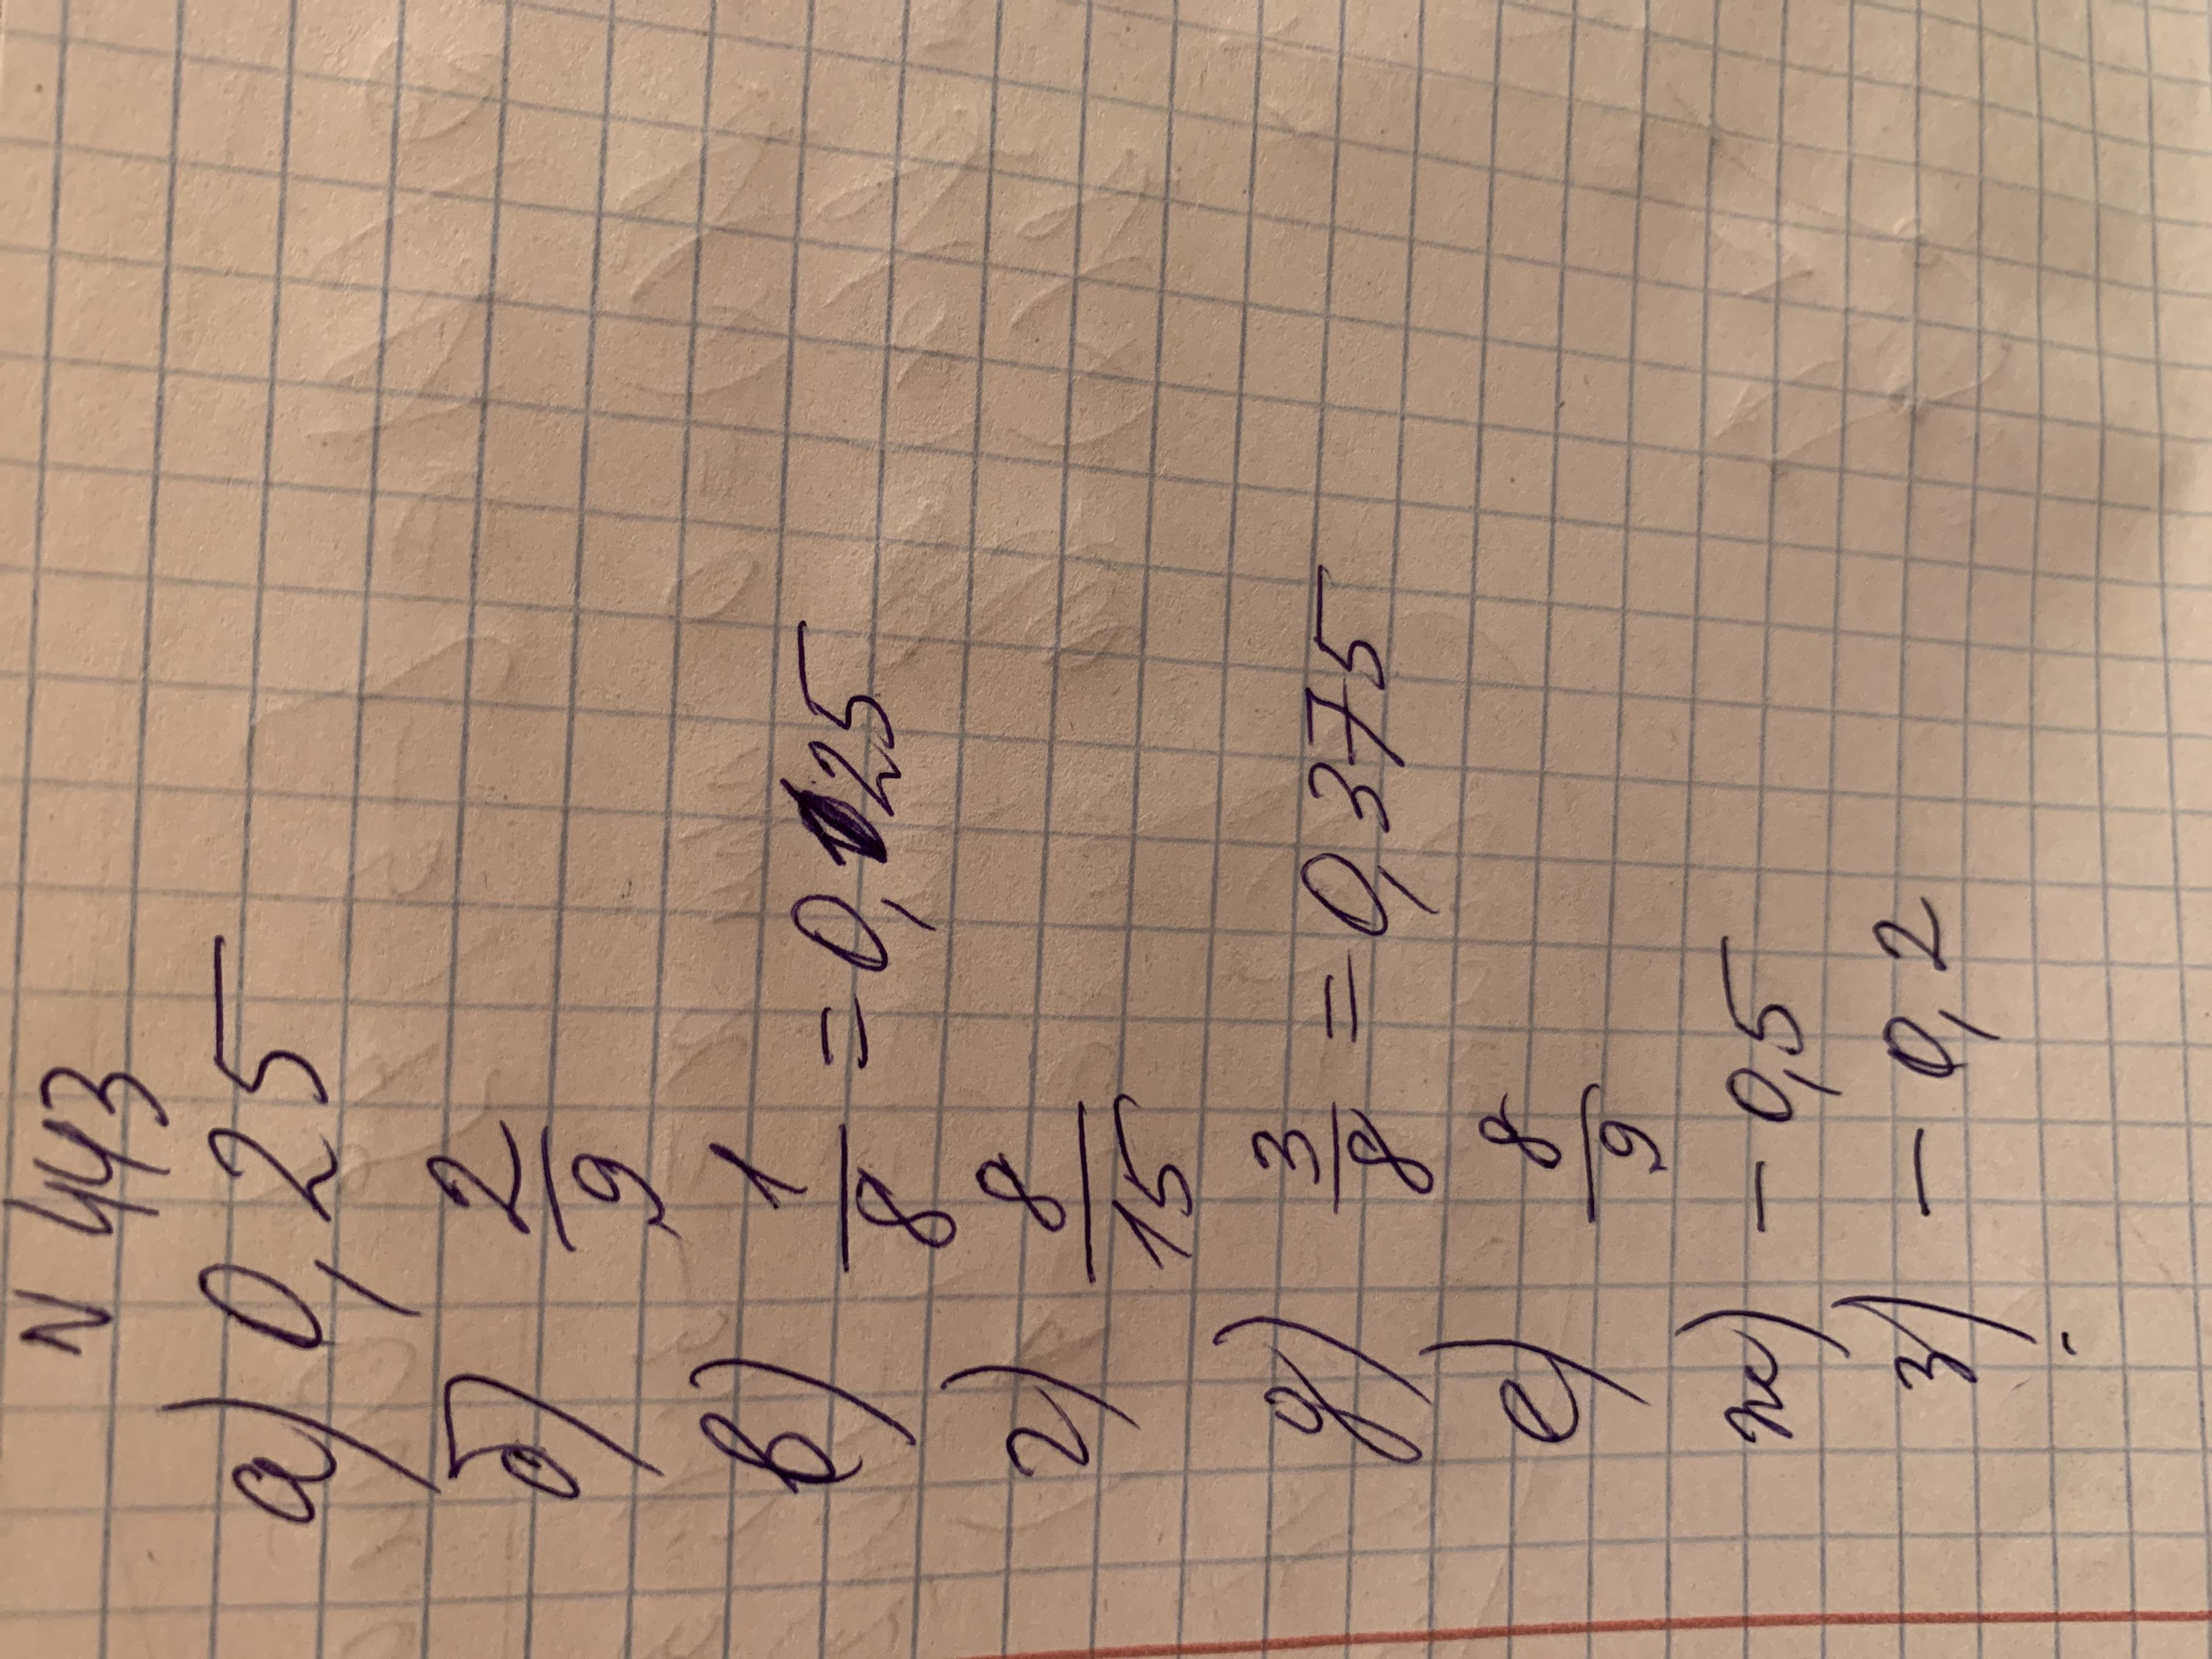 N 443
а) 0,25
б) 2/9
в) 1/8 = 0,125
г) 8/15
д) 3/8 = 0,375
е) 8/9
ж) - 0,5
з) - 0,2